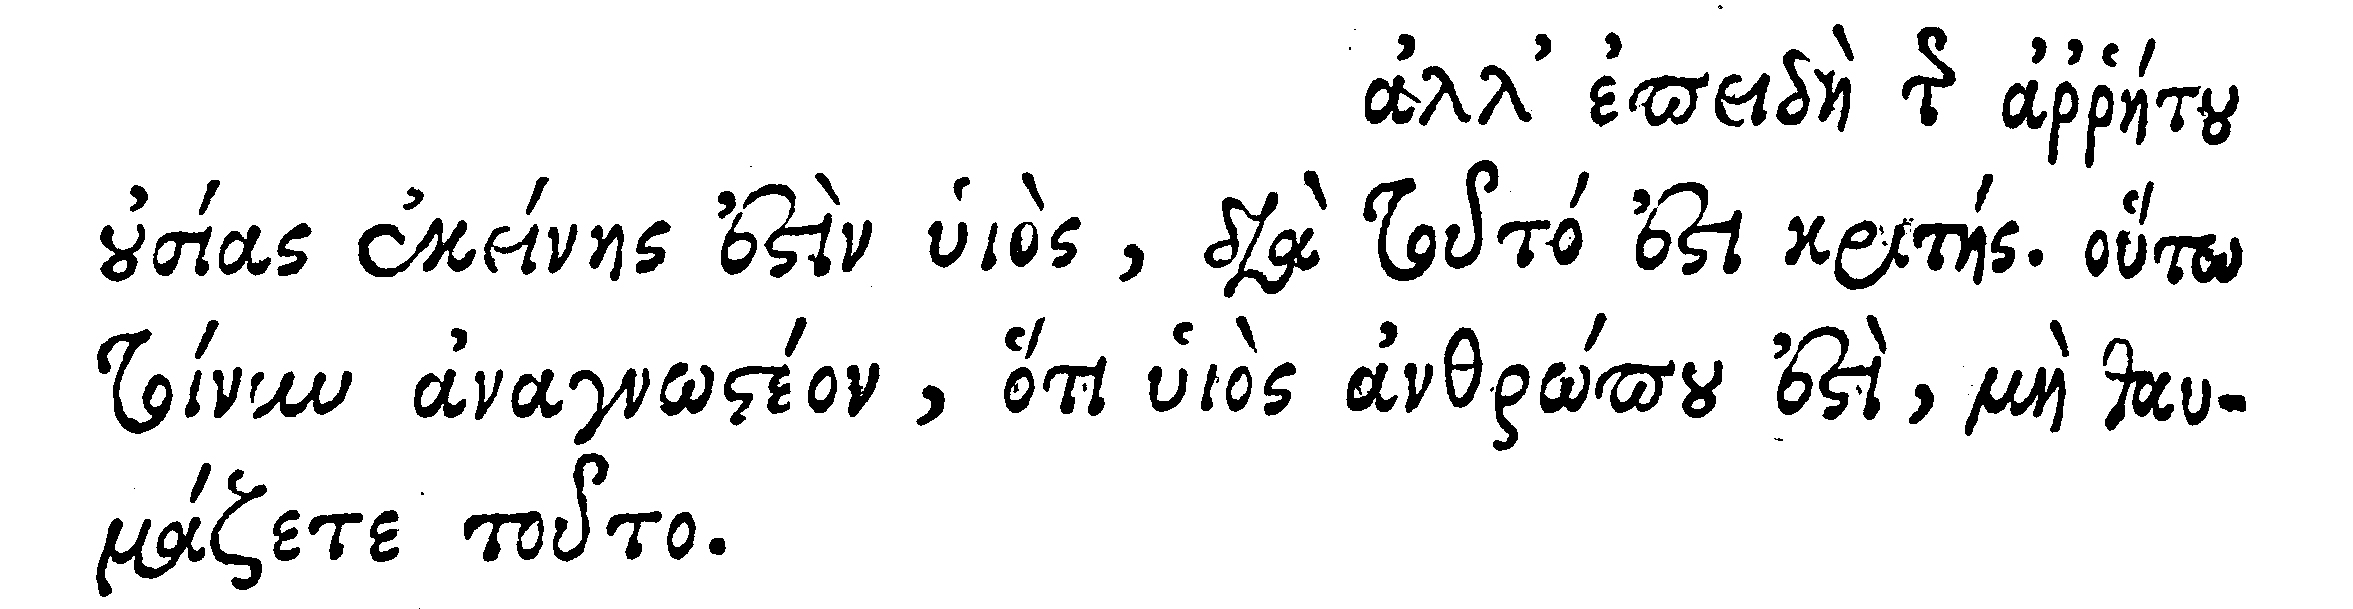 ἀλλ’ ἐπειδὴ τῆς ἀῤῥήτου
οὐσίας ἐκείνης ἐστὶν υἱὸς, διὰ τοῦτό ἐστι κριτής. οὕτω
τοίνυν ἀναγνωστέον, ὅτι υἱὸς ἀνθρώπου ἐστὶ, μὴ θαυ-
μάζετε τοῦτο.